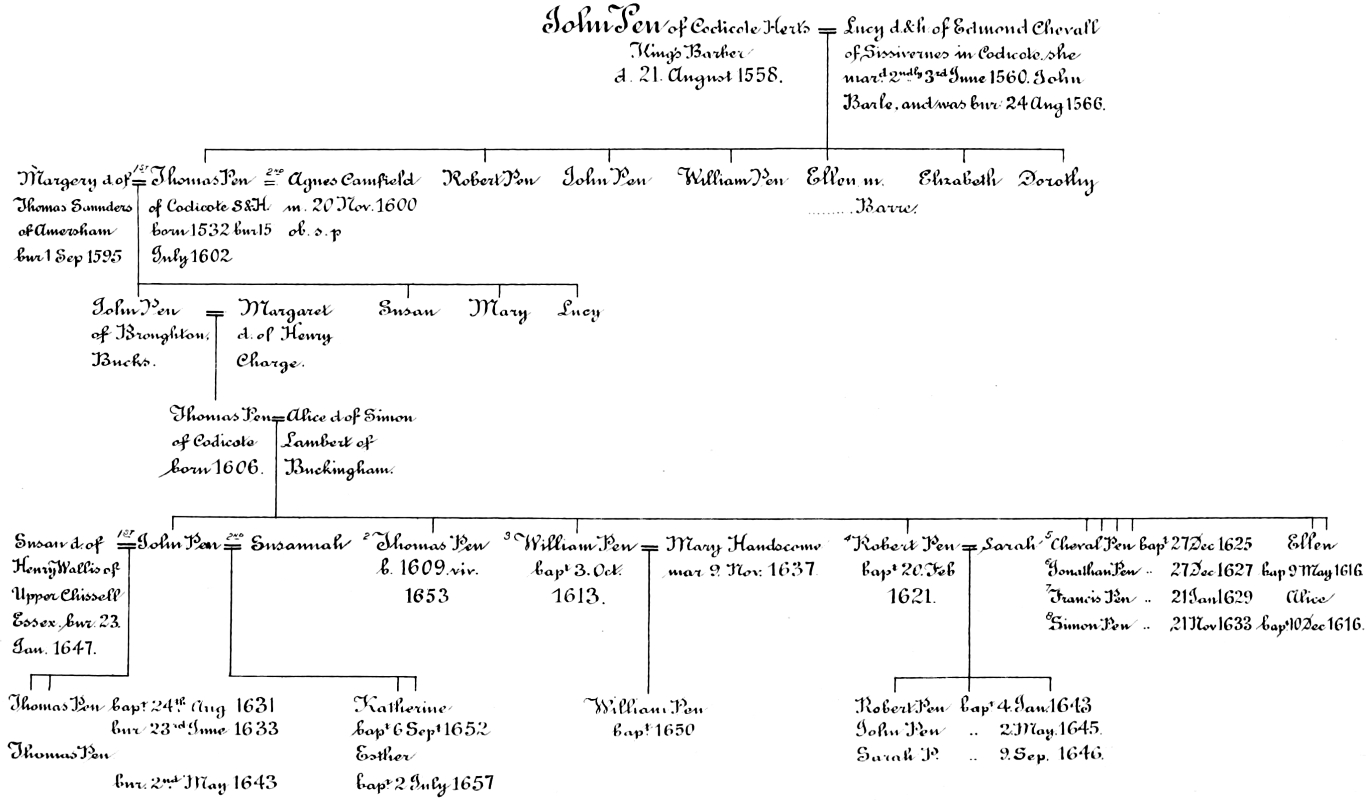 John Pen of Codicote Herts = Lucy d.&h. of Edmond Chevall
King's Barber
d. 21. August 1558.
of Sissivernes in Codicote, she
mar.d 2ndly 3rd June 1560. John
Barle, and was bur: 24 Aug 1566.
Margery d. of
Thomas Saunders
of Amersham
bur 1 Sep 1595
1ST
Thomas Pen
of Codicote S&H
born 1532 bur 15
July 1602
2ND
Agnes Camfield
m. 20 Nov. 1600
ob. s. p
Robert Pen
John Pen
William Pen
Ellen m.
......... Barre.
Elizabeth
Dorothy
John Pen
of Broughton,
Bucks.
=
Margaret
d. of Henry
Charge.
Susan
Mary
Lucy
Thomas Pen
of Codicote
born 1606.
=
Alice d. of Simon
Lambert of
Buckingham.
Susan d. of
Henry Wallis of
Upper Chissell
Essex. bur. 23.
Jan. 1647.
1ST
John Pen
2ND
Susannah
2 Thomas Pen
b. 1609. viv.
1653
3 William Pen
bapt 3. Oct.
1613.
=
Mary Handscome
mar 9. Nov: 1637.
4 Robert Pen
bapt 20. Feb
1621.
=
Sarah
5 Cheval Pen bapt 27 Dec 1625
6 Jonathan Pen .. 27 Dec 1627
7 Francis Pen .. 21 Jan 1629
8 Simon Pen .. 21 Nov 1633
Ellen
bap 9 May 1616.
Alice
bapt 10 Dec 1616.
Thomas Pen bapt 24th Aug 1631
bur 23rd June 1633
Thomas Pen
bur. 2nd May 1643
Katherine
bapt 6 Sept 1652
Esther
bapt 2 July 1657
William Pen
bapt 1650
Robert Pen bapt 4. Jan. 1643
John Pen .. 2 May. 1645.
Sarah P. .. 9. Sep. 1646.